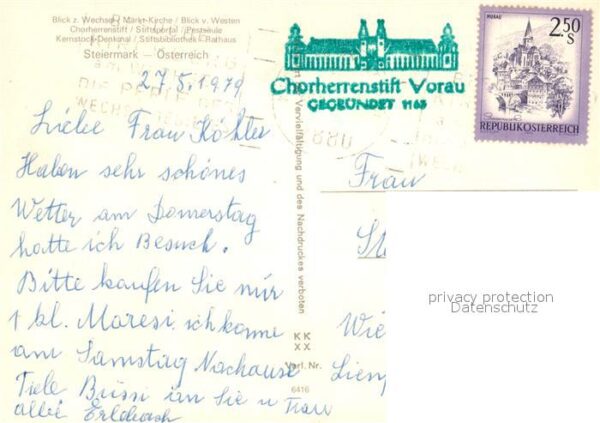 Blick z. Wechsel / Markt-Kirche / Blick v. Westen
Chorherrenstift / Stiftsportal / Pestsäule
Kernstock-Denkmal / Stiftsbibliothek / Rathaus
Steiermark — Österreich
27.5.1979
Liebe Frau Köhler
Haben sehr schönes
Wetter am Donnerstag
hatte ich Besuch.
Bitte kaufen Sie mir
1 kl. Maresi, ich komme
am Samstag Nachause
Viele Bussi an Sie u Frau
Chorherrenstift Vorau
GEGRÜNDET 1163
MURAU
2.50
S
REPUBLIK ÖSTERREICH
Vervielfältigung und des Nachdruckes verboten
KK
XX
Verl. Nr.
6416
Frau
Wie
privacy protection
Datenschutz